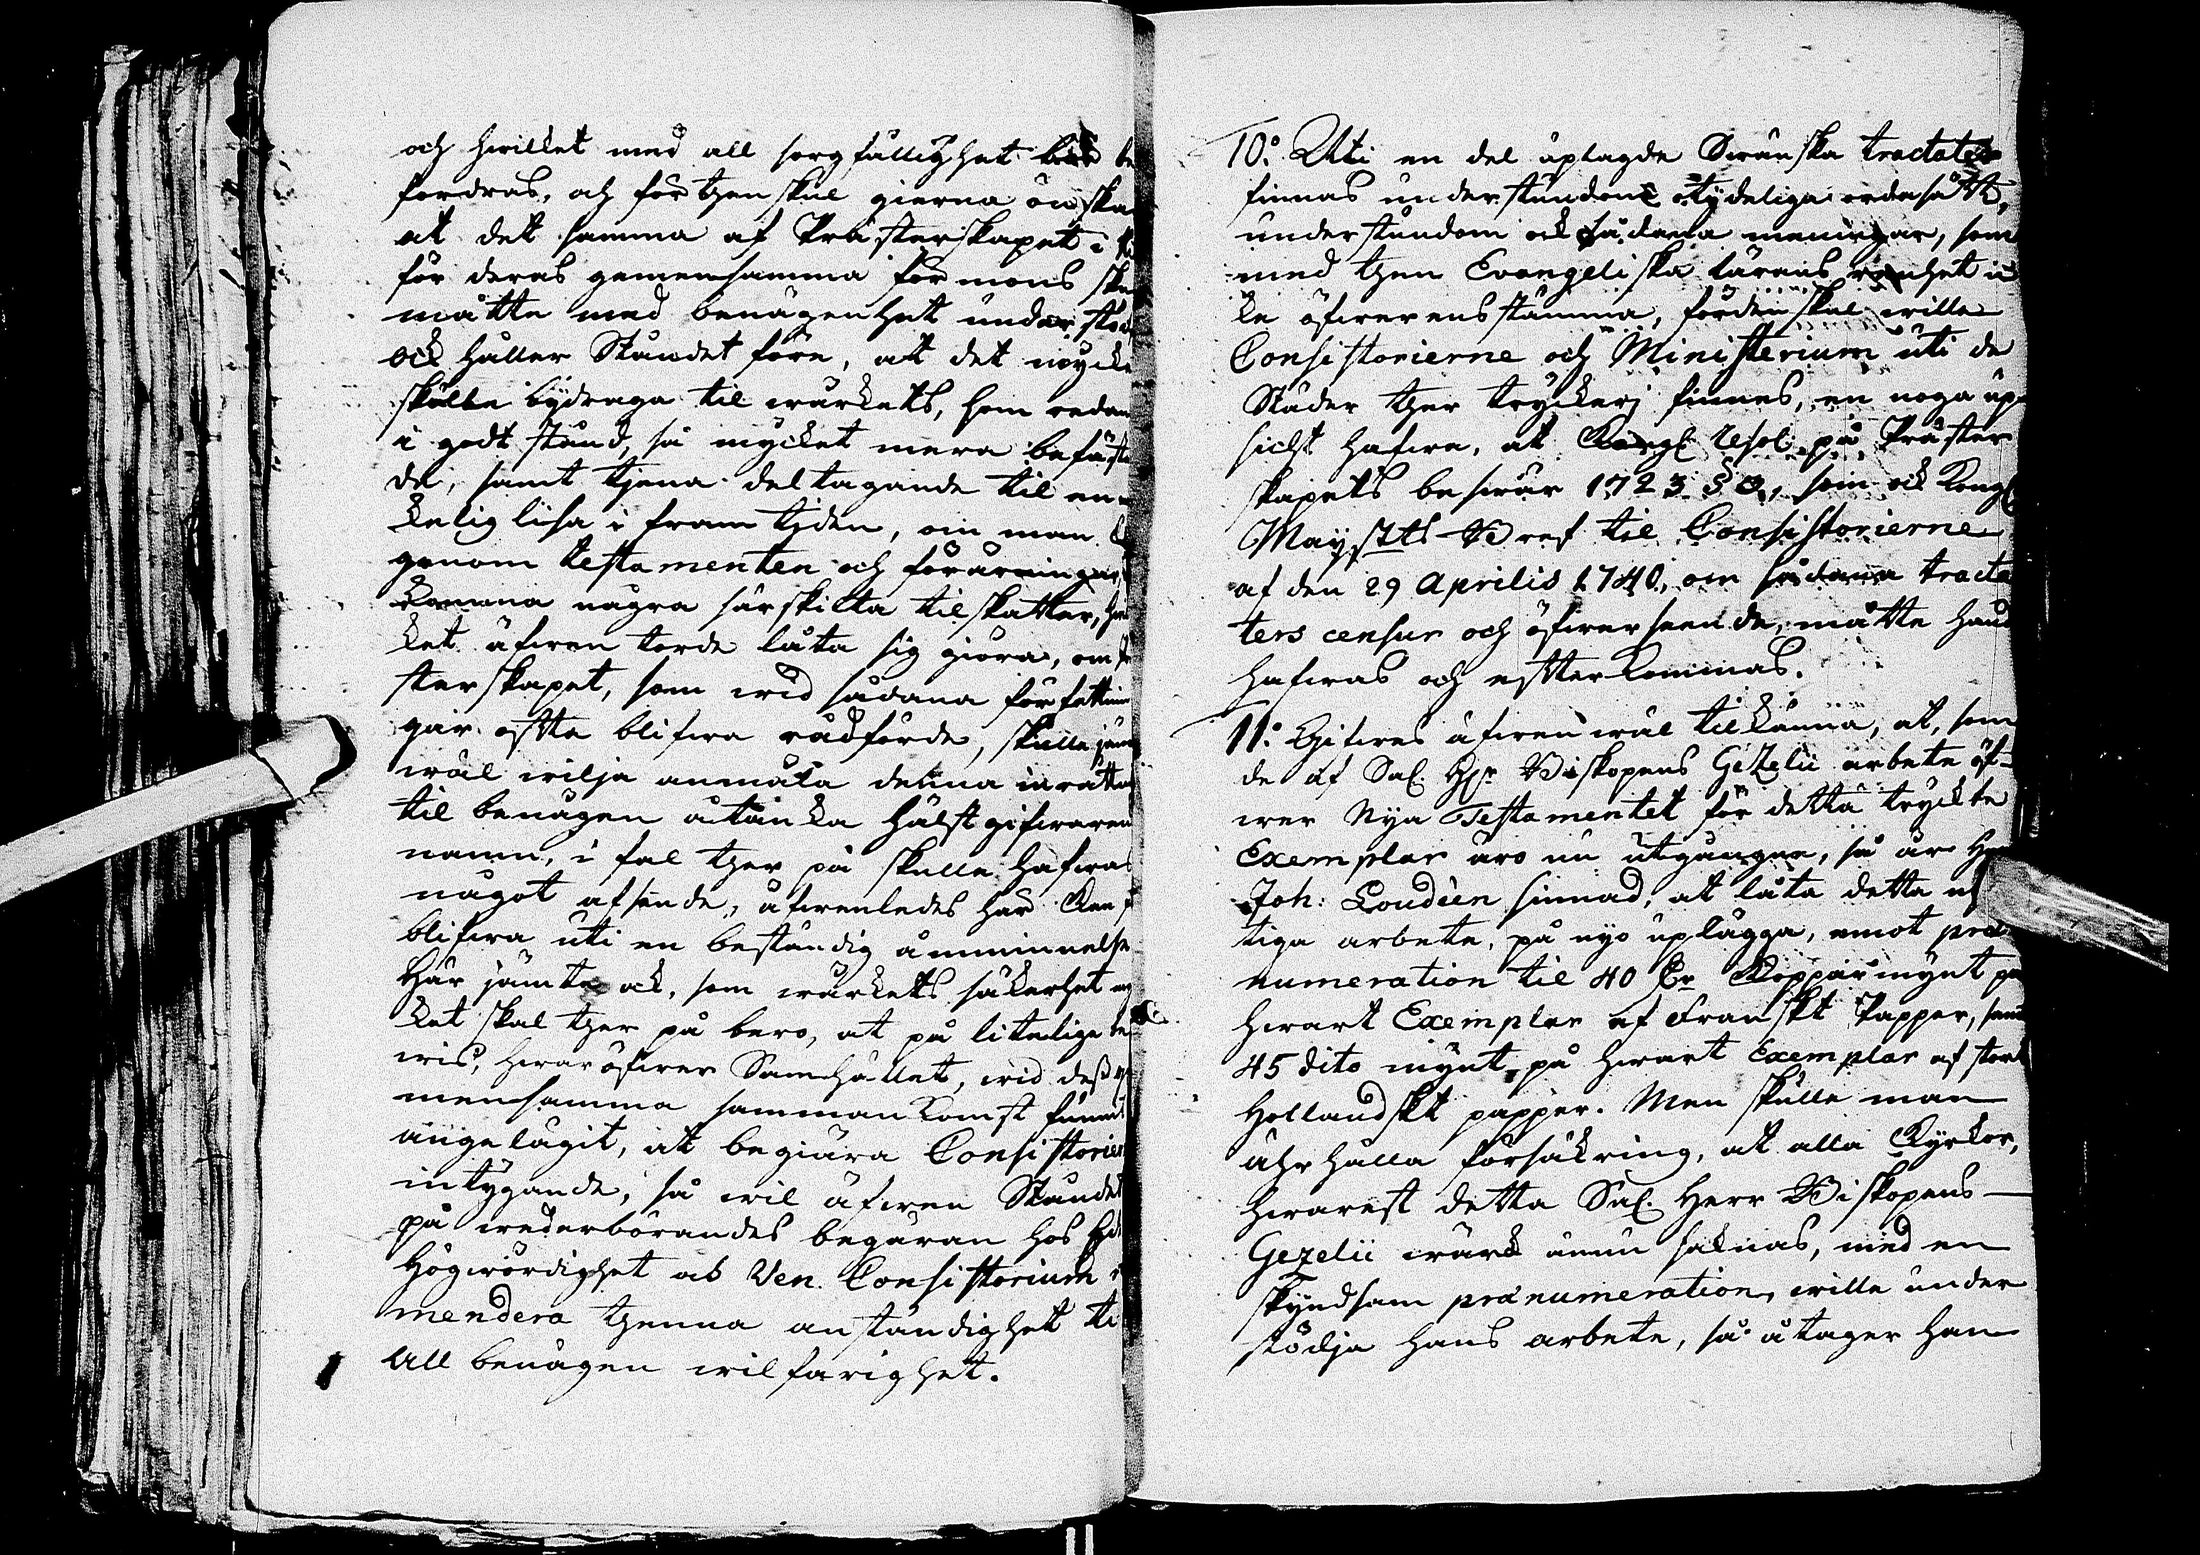 och hwilket med all sorgfällighet bör be
fordras, och förthenskul gierna önska
at det samma af Prästerskapet i
för deras gemensamma förmons sku
måtte med benägenhet understöd
Ock håller Ståndet före, at det mycke
skulle bÿdraga til wärkets, som redan
i godt stånd, så mycket mera befäst
de, samt thena deltagande til en
kelig lisa i framtiden, om man
genom testamenten och föräringar
komma några särskilta tilskatter, hwil
ket äfwen torde låta sig giöra, om Pr
sterskapet, som wid sådana författnin
gar ofta blifwa rådförde, skulle
wäl wilja anmäla denna inrättn
til benägen åtanka hälst gifwaren
namn, i fal ther på skulle hafwas
något afsende, äfwenledes här kan
blifwa uti en beständig åminnelse
Här jämte ock, som wärkets säkerhet my
ket skal ther på bero, at på litelige be
wis, hwaröfwer Samhället, wid deß ge
mensamma sammankomst funnit
angelägit, at begiära Consistorier
intÿgande, så wil äfwen Ståndet
på wederbörandes begäran hos
Högwördighet ock Ven. Consistorium
mendera thenna anständighet ti
All benägen wilfarighet.
10:o Uti en del uplagde Swänska tractater
finnas understundom otydeliga ordasätt,
understundom ock sådana meningar, som
med then Evangeliska lärans renhet ic
ke öfwerensstämma, fördenskul wille
Consistorierne och Ministerium uti de
Städer ther tryckerj finnes, en noga up
sickt hafwa, at Kongl. Resol. på Präster
skapets beswär 1723 § 3, som ock Kongl.
Mayestts Bref til Consistorierne
af den 29 Aprilis 1740, om sådana tracta
ters censur och öfwerseende, måtte hand
hafwas och efterkommas.
11:o Gifwes äfwen wäl tilkänna, at, som
de af Sal. Hr Biskopens Gezelii arbete öf
wer Nya Testamentet för detta tryckte
Exemplar äro nu utgångne, så är Her
Joh: Loudéen sinnad, at låta detta
tiga arbete, på nyo uplägga, emot præ
numeration til 40 Dr Koppar mynt på
hwart Exemplar af Franskt Papper, samt
45 dito mÿnt på hwart Exemplar af stort
Hollandskt papper. Men skulle man
ährhålla försäkring, at alla Kyrkor,
hwarest detta Sal. Herr Biskopens
Gezelii wärk ännu saknas, med en
skÿndsam prænumeration, wille under
stödja hans arbete, så åtager han